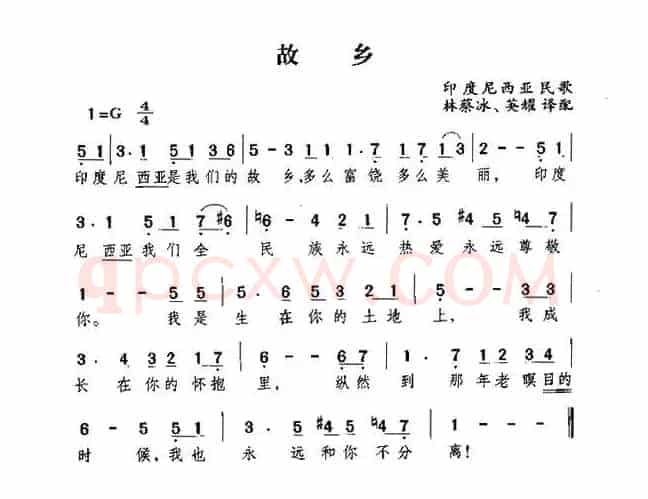 故 乡
印度尼西亚民歌
1=G 4/4
林蔡冰、英耀 译配
5 1 | 3· 1 5 1 3 6 | 5 - 3 1 1·7 1 7 1 3 | 2 - - 5 1 |
印度尼 西亚是我们的故 乡,多么富饶多么美 丽, 印度
3· 1 5 1 7 #6 | ♮6 - 4 2 1 | 7· 5 #4 5 ♮4 7 |
尼 西亚我们全 民 族永远 热爱永远尊敬
1 - - 5 5 | 5· 6 5 3 1 2 1 | 5 - - 3 3 |
你。 我是 生 在你的土地 上, 我成
3· 4 3 2 1 7 | 6 - - 6 7 | 1· 7 1 2 3 4 |
长 在你的怀抱 里, 纵然 到 那年老瞑目的
6 - 5 5 1 | 3· 5 #4 5 ♮4 7 | 1 - - - ‖
时 候,我也 永 远和你不分 离!
qpcxw.COM